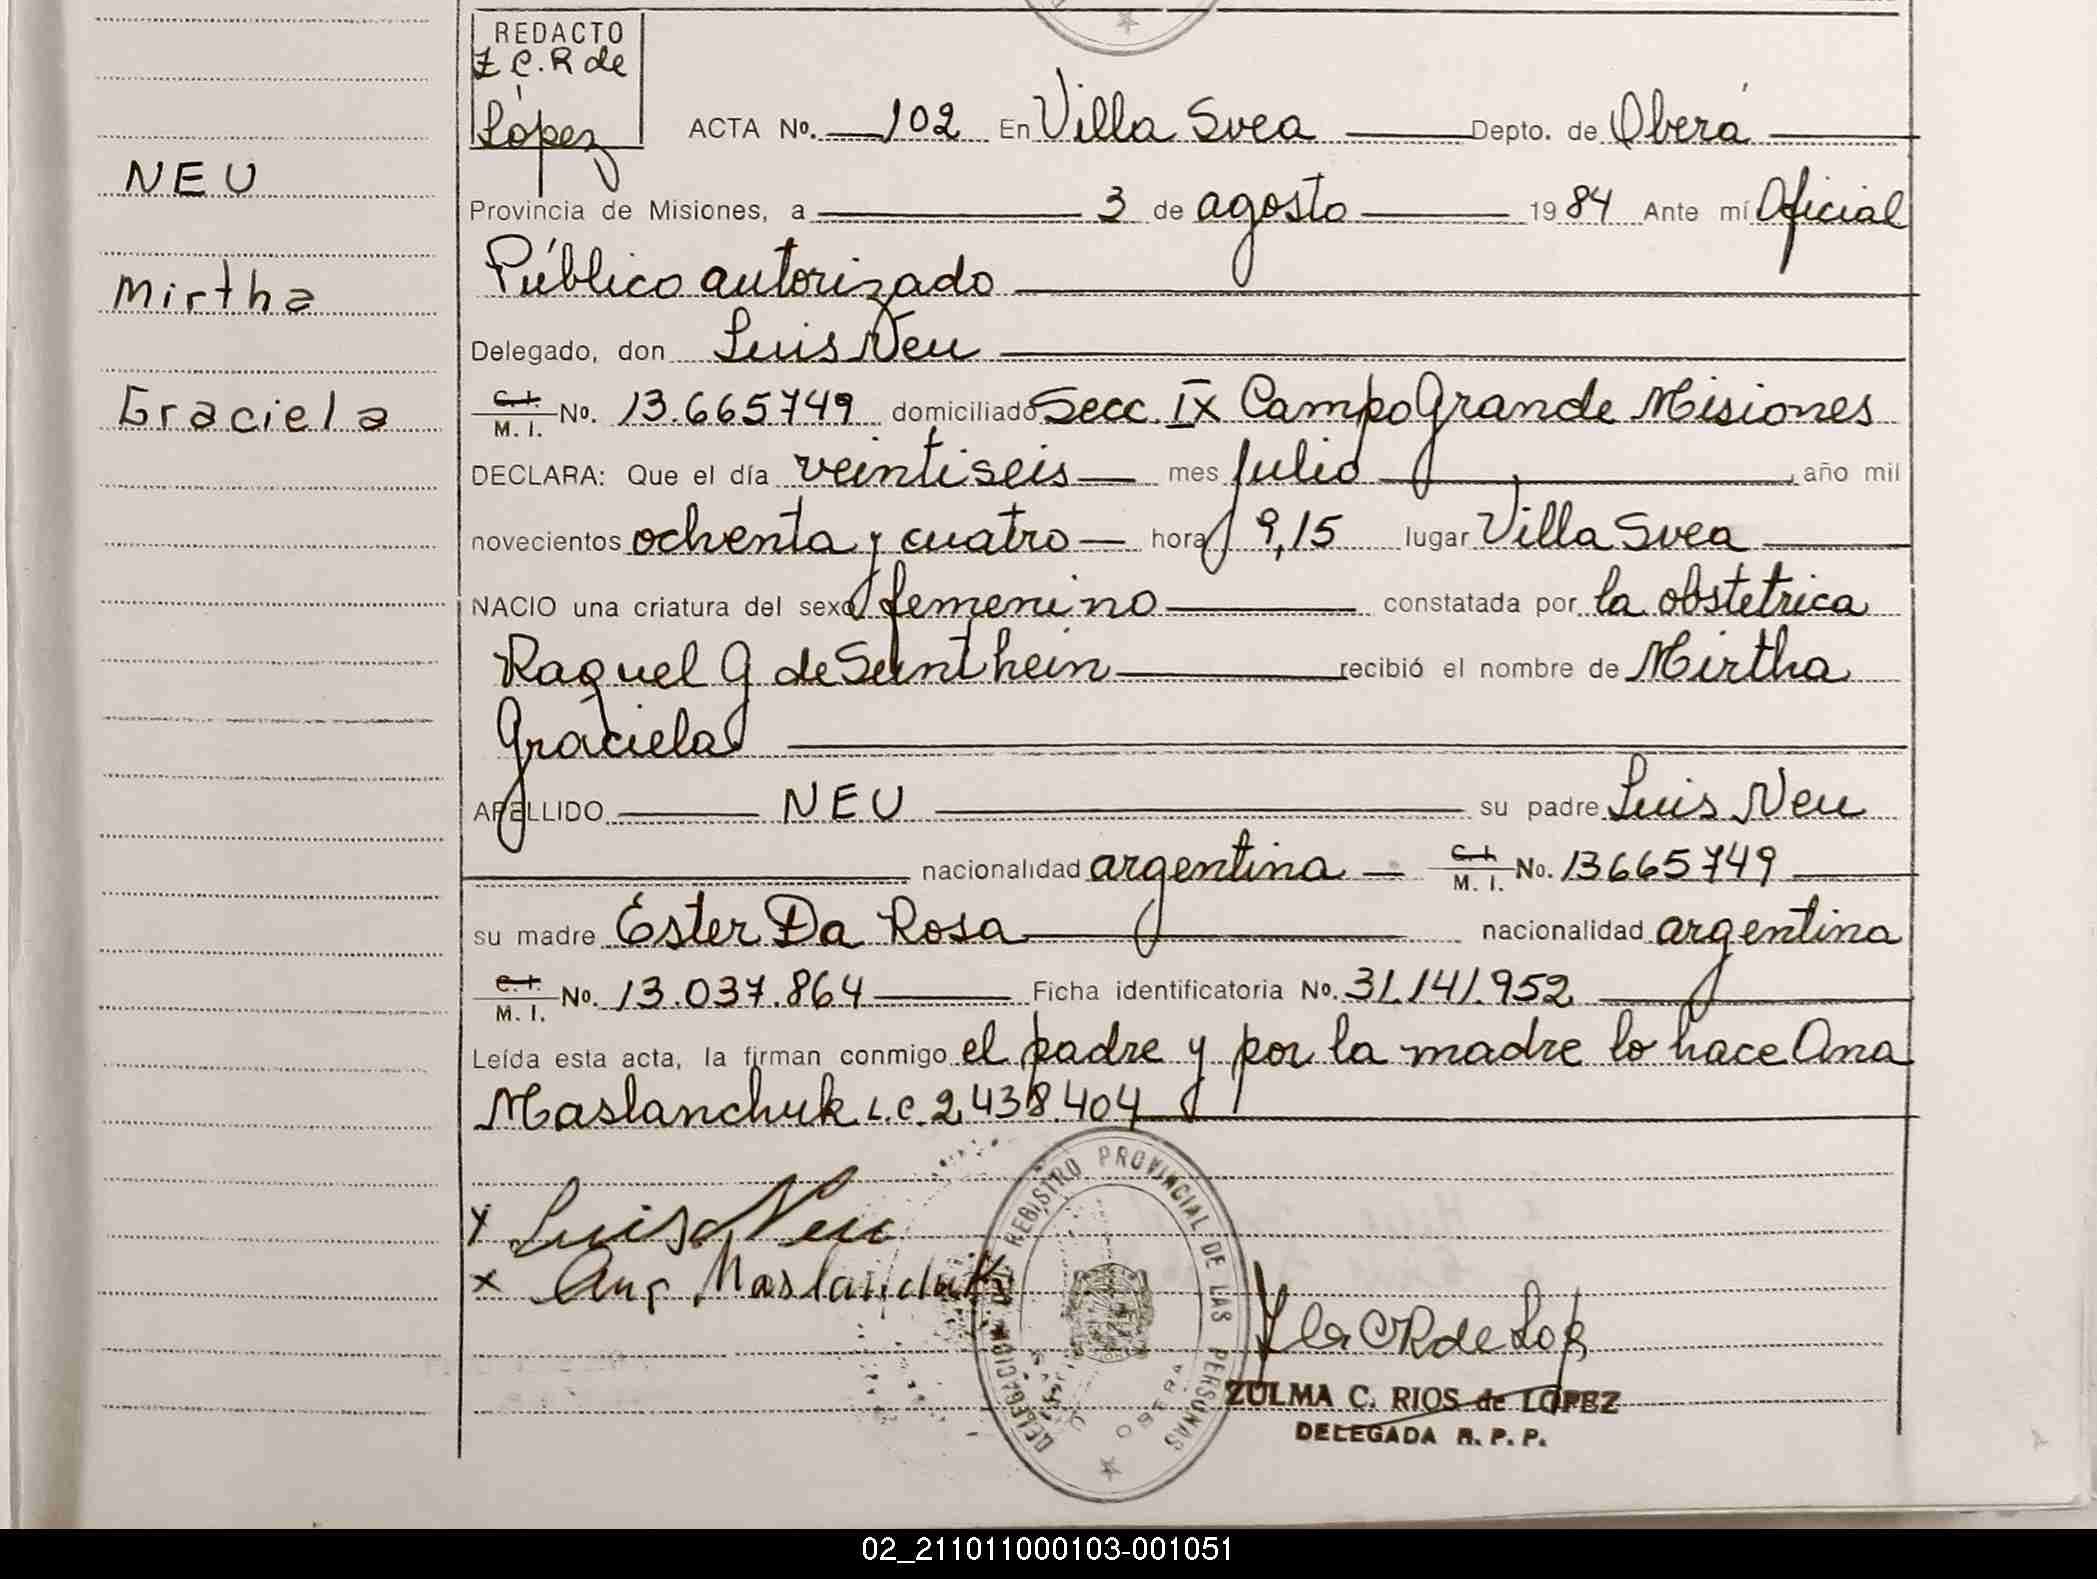 REDACTO
Z C. R de
López
ACTA No. 102 En Villa Svea Depto. de Oberá
NEU
Provincia de Misiones, a 3 de agosto 1984 Ante mí Oficial
Público autorizado
Mirtha
Delegado, don Luis Neu
Graciela
C. I. M. I. No. 13.665749 domiciliado Secc. IX Campo Grande Misiones
DECLARA: Que el día veintiseis mes Julio, año mil
novecientos ochenta y cuatro hora 9,15 lugar Villa Svea
NACIO una criatura del sexo femenino constatada por la obstetrica
Raquel G de recibió el nombre de Mirtha
Graciela
APELLIDO NEU su padre Luis Neu
nacionalidad argentina C. I. M. I. No. 13665749
su madre Ester Da Rosa nacionalidad argentina
C. I. M. I. No. 13.037.864 Ficha identificatoria No. 31.141.952
Leída esta acta, la firman conmigo el padre y por la madre lo hace Ana
Maslanchuk L.C. 2438.404
REGISTRO PROVINCIAL DE LAS PERSONAS
x Luis Neu
x Ana Maslanchuk
DELEGACION
OBERA
ZULMA C. RIOS de LOPEZ
DELEGADA R. P. P.
02_211011000103-001051